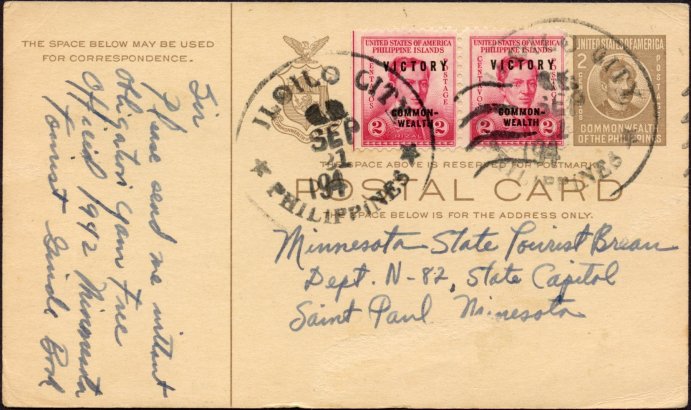 THE SPACE BELOW MAY BE USED
FOR CORRESPONDENCE.
Sir
Please send me without
obligation your free
Official 1942 Minnesota
Tourist Guide Book
UNITED STATES OF AMERICA
PHILIPPINE ISLANDS
VICTORY
CENTAVOS
POSTAGE
COMMON-
WEALTH
2 2
UNITED STATES OF AMERICA
PHILIPPINE ISLANDS
VICTORY
CENTAVOS
POSTAGE
COMMON-
WEALTH
2 2
UNITED STATES OF AMERICA
2
POSTAGE
COMMONWEALTH
OF THE PHILIPPINES
ILOILO CITY
SEP
194
PHILIPPINES
CITY
SEP
194
PHILIPPINES
THE SPACE ABOVE IS RESERVED FOR POSTMARK
POSTAL CARD
THE SPACE BELOW IS FOR THE ADDRESS ONLY.
Minnesota State Tourist Breau
Dept. N-82, State Capitol
Saint Paul Minesota